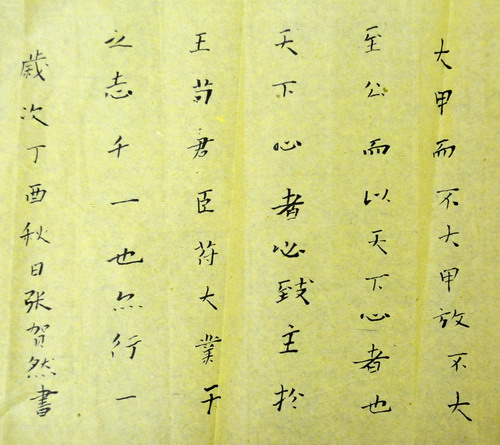 大甲而不大甲放不大
至公而以天下心者也
天下心者必致主於
王苟君臣苻大業于
之志千一也亦行一
歲次丁酉秋日张贺然書